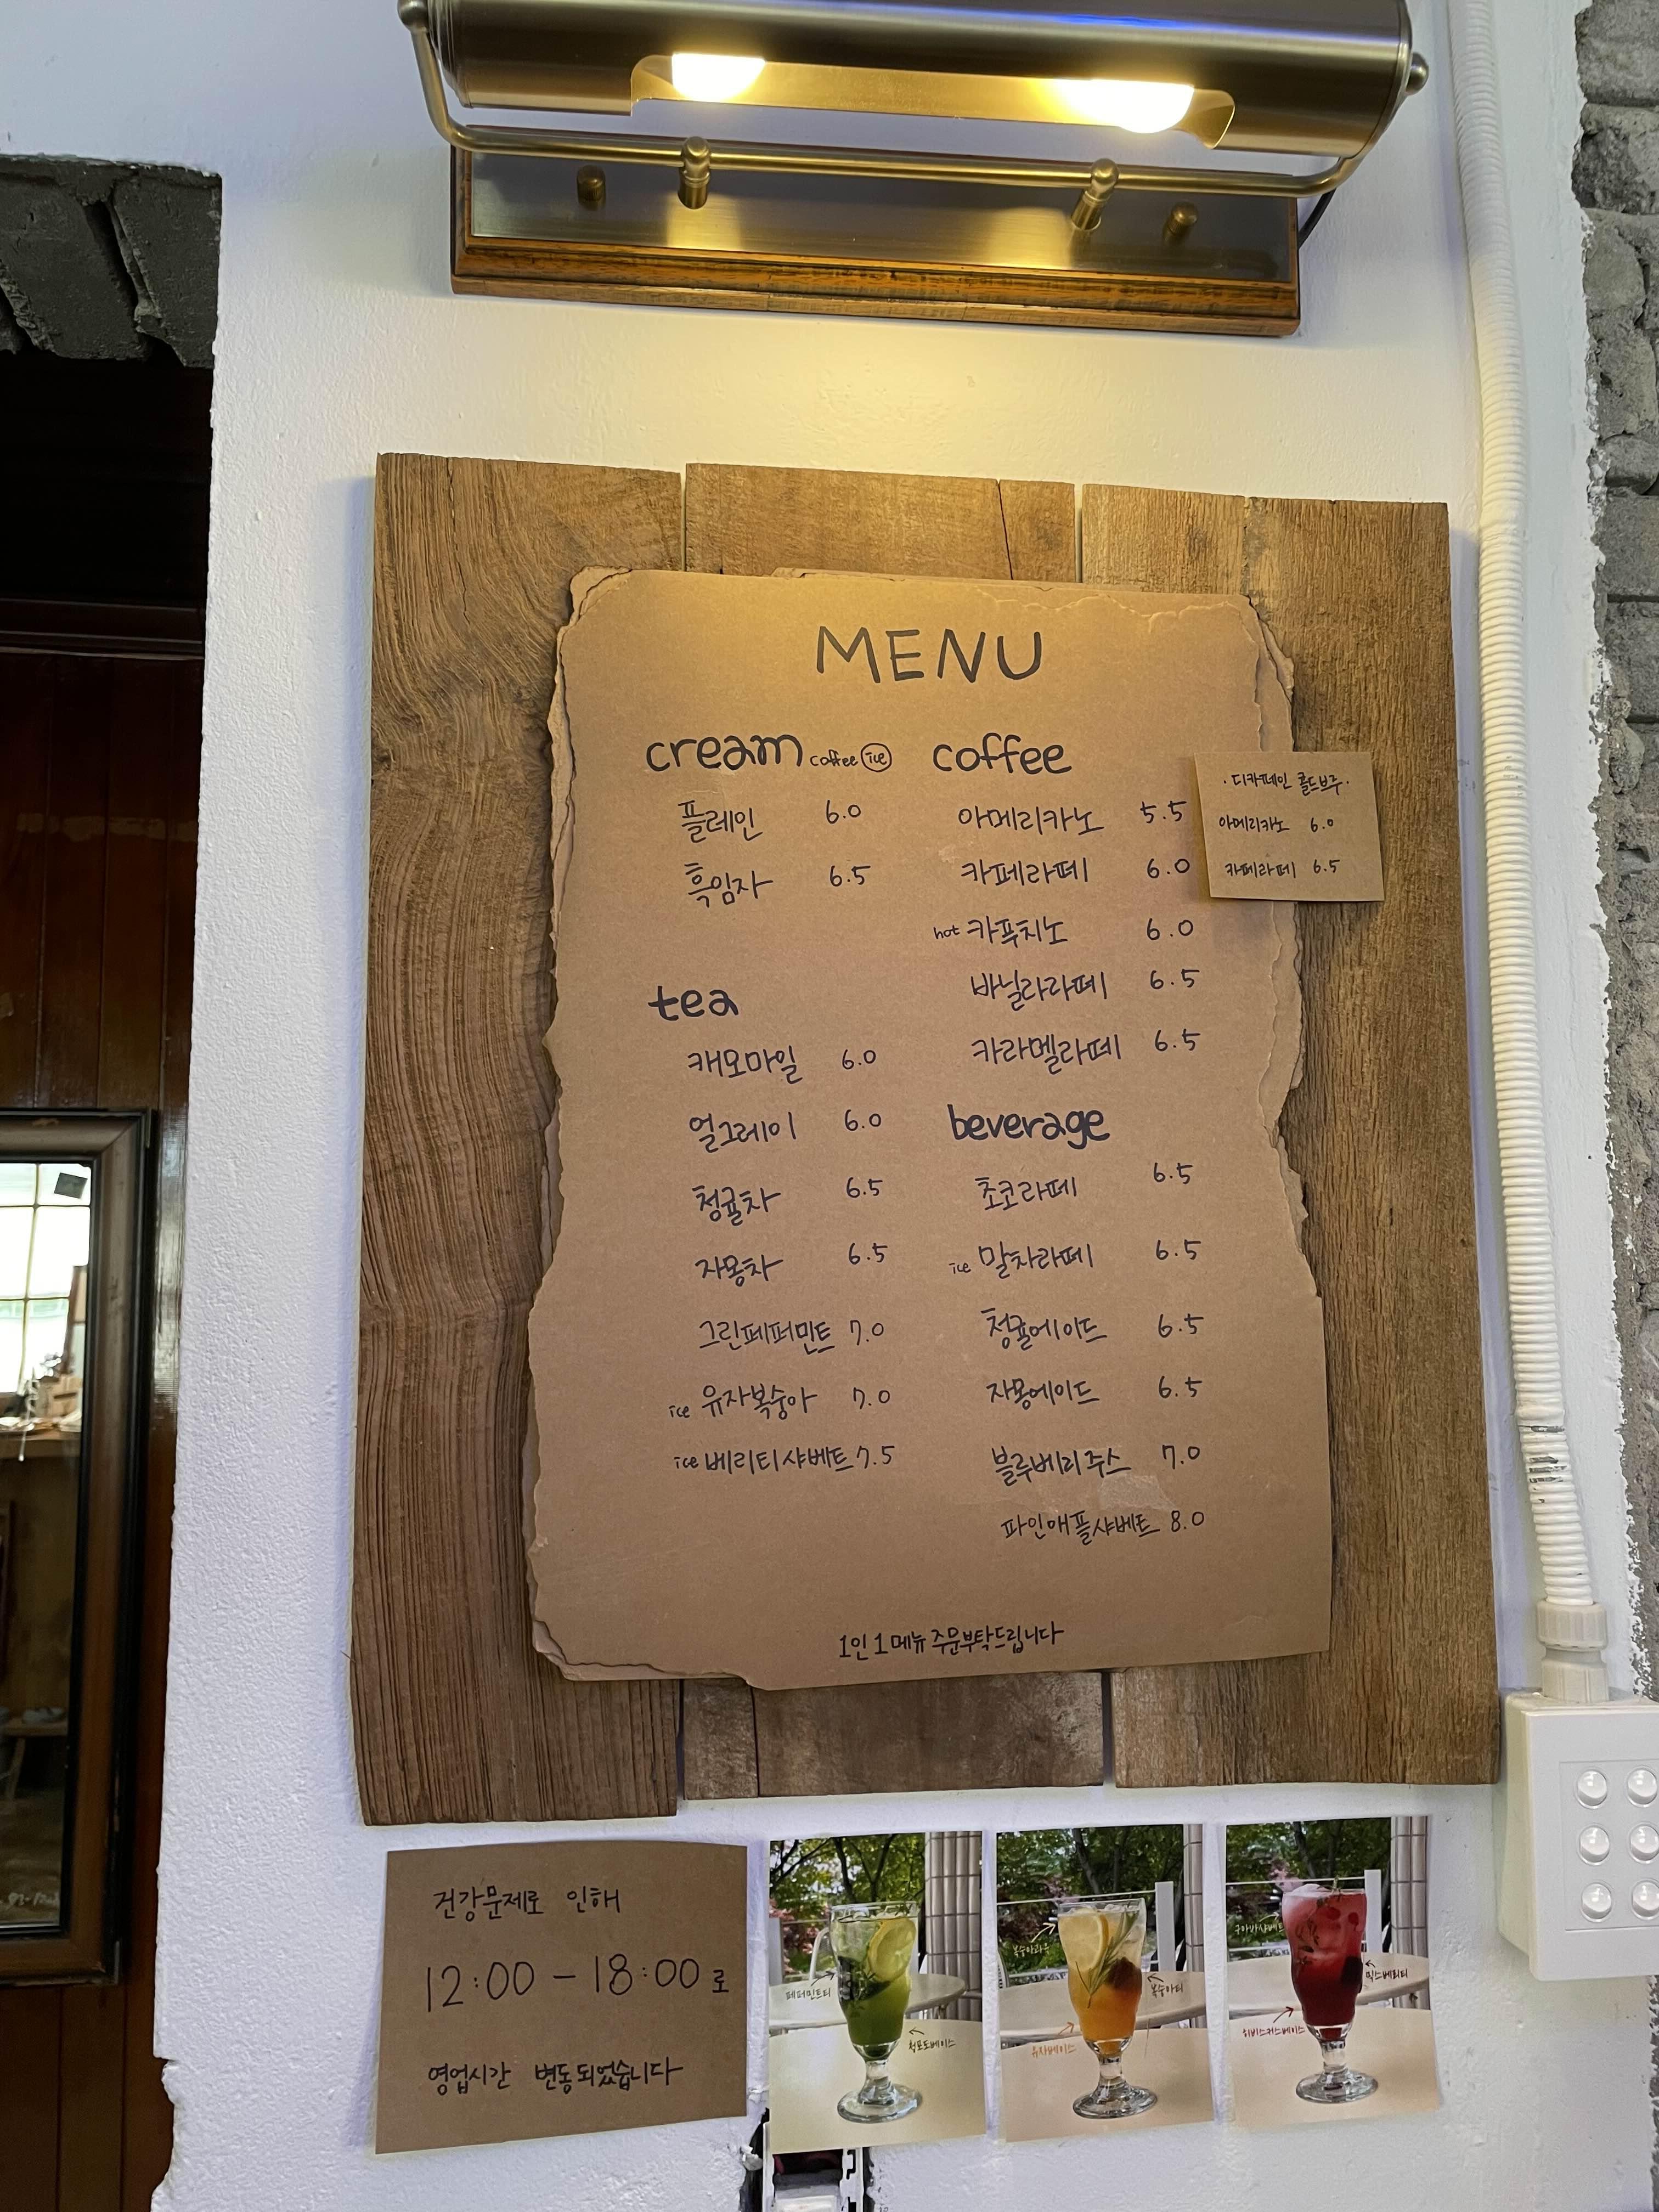 MENU
cream coffee ice
플레인 6.0
흑임자 6.5
tea
캐모마일 6.0
얼그레이 6.0
청귤차 6.5
자몽차 6.5
그린페퍼민트 7.0
ice 유자복숭아 7.0
ice 베리티샤베트 7.5
coffee
아메리카노 5.5
카페라떼 6.0
hot 카푸치노 6.0
바닐라라떼 6.5
카라멜라떼 6.5
beverage
초코라떼 6.5
ice 말차라떼 6.5
청귤에이드 6.5
자몽에이드 6.5
블루베리주스 7.0
파인애플샤베트 8.0
1인 1메뉴 주문부탁드립니다
·디카페인 콜드브루·
아메리카노 6.0
카페라떼 6.5
건강문제로 인해
12:00 - 18:00 로
영업시간 변동되었습니다
페퍼민트티
청포도베이스
복숭아티
유자베이스
믹스베리티
히비스커스베이스